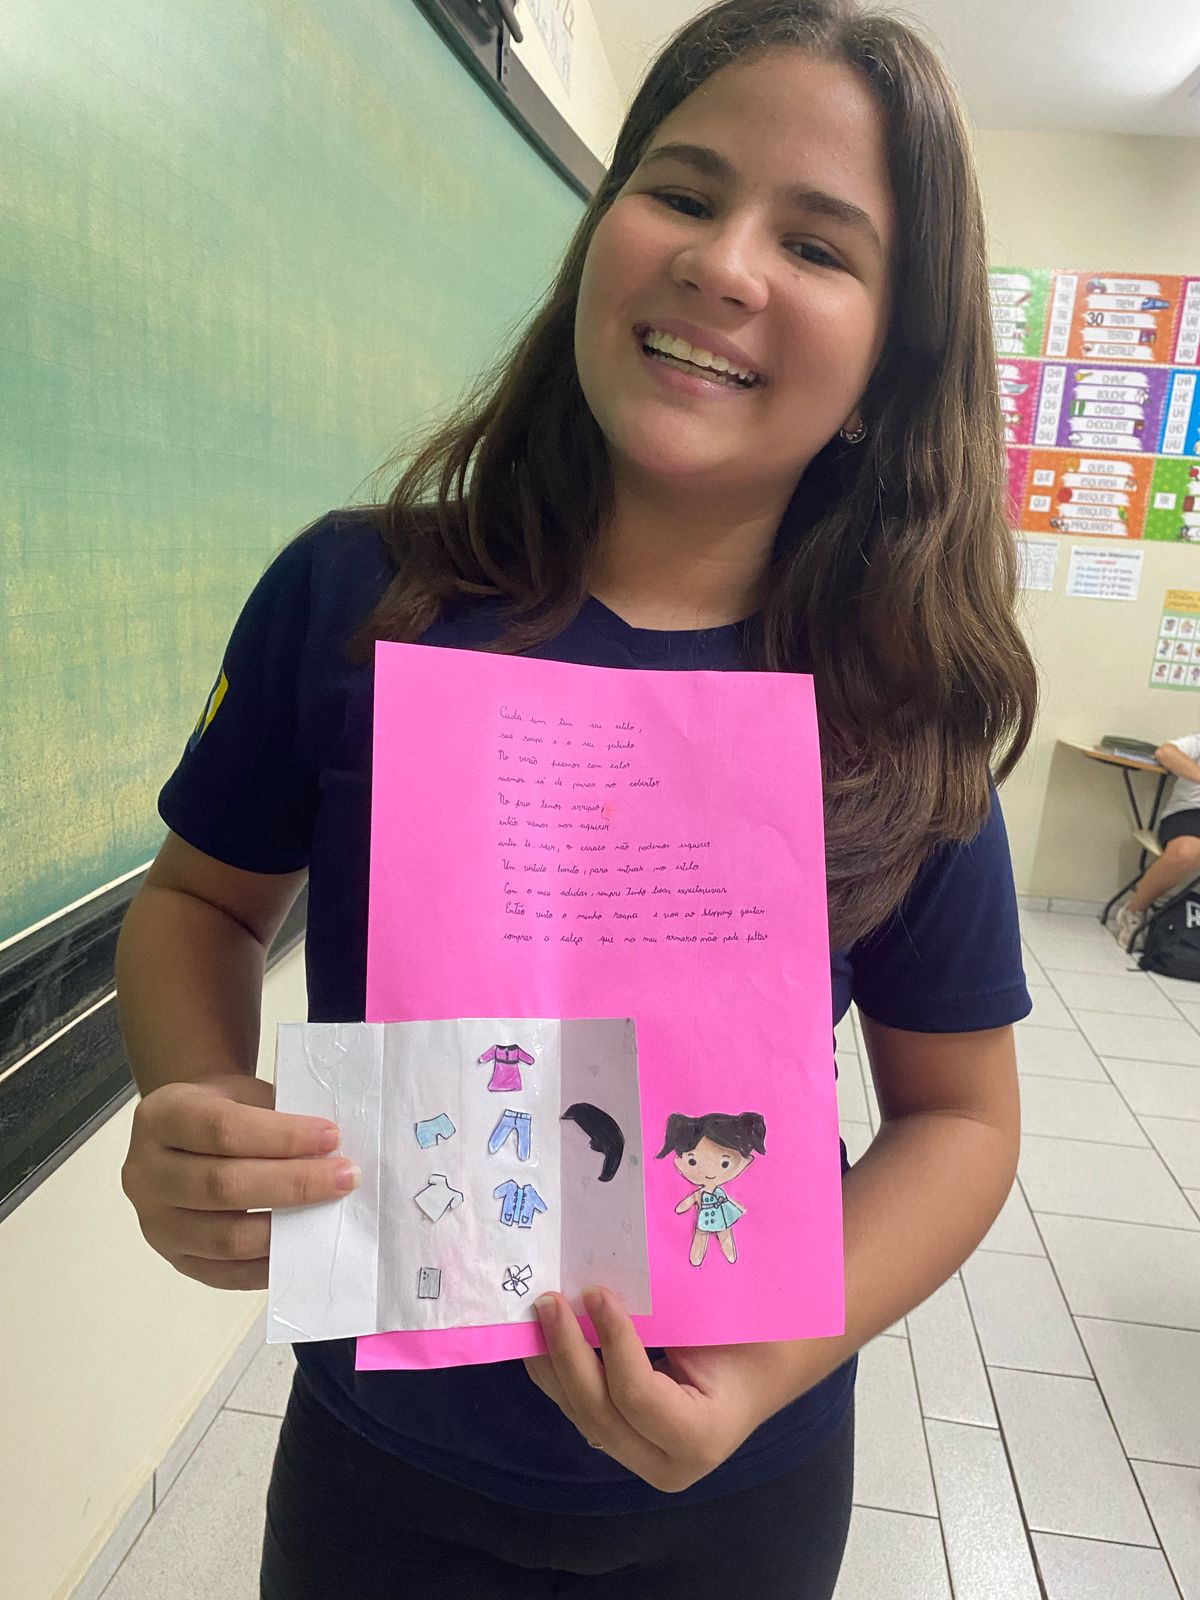 Cada um tem seu estilo,
sua roupa e o seu jeitinho
No verão ficamos com calor
suamos só de pensar no cobertor
No frio temos arrepio,
então vamos nos aquecer
antes de sair, o casaco não podemos esquecer
Um vestido bonito, para entrar no estilo
Com o meu adidas, sempre tenho boas
Então visto a minha roupa e vou ao shopping gastar
comprar a calça que no meu armario não pode faltar
TRA
TRE
TRI
TRO
TRU
TRATOR
TREM
30 TRINTA
TEATRO
AVESTRUZ
CHA
CHE
CHI
CHO
CHU
CHAVE
BOLICHE
CHINELO
CHOCOLATE
CHUVA
LHA
LHE
LHI
LHO
LHU
QUE
QUI
QUEIJO
ESQUERDA
BASQUETE
PERIQUITO
MAQUIAGEM
RR